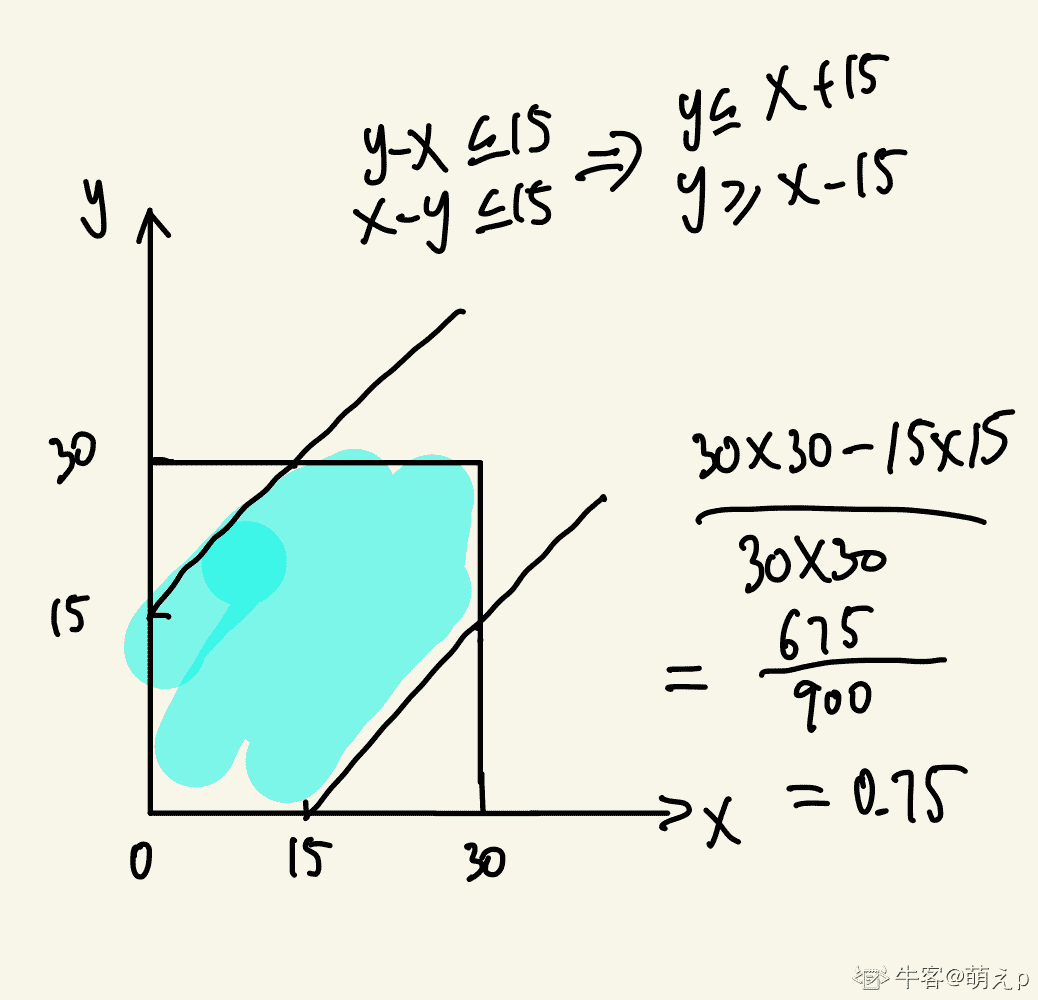 y-x ≤15 ⇒ y≤ x+15
x-y ≤15 y≥ x-15
y
30
15
0 15 30 x
30×30-15×15
30×30
= 675
900
= 0.75
牛客@萌えρ